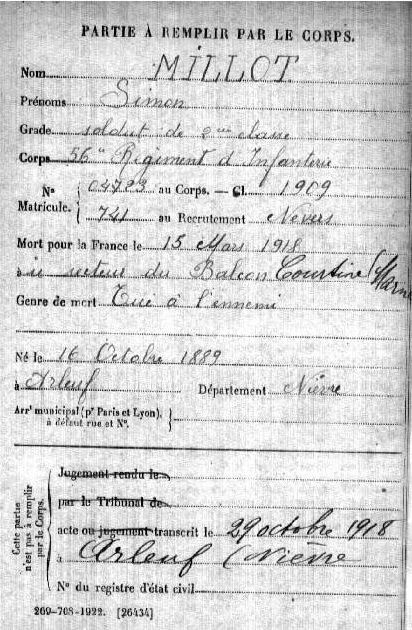 PARTIE À REMPLIR PAR LE CORPS.
Nom MILLOT
Prénoms Simon
Grade soldat de 2ème classe
Corps 56e Régiment d'Infanterie
N° 04723 au Corps. — Cl. 1909
Matricule. 741 au Recrutement Nevers
Mort pour la France le 15 Mars 1918
à secteur du Balcon Courtine (Marne
Genre de mort Tué à l'ennemi
Né le 16 Octobre 1889
à Arleuf Département Nièvre
Arrt municipal (pr Paris et Lyon),
à défaut rue et N°.
Cette partie
n'est pas à remplir
par le Corps.
Jugement rendu le
par le Tribunal de
acte ou jugement transcrit le 29 octobre 1918
à Arleuf (Nièvre
N° du registre d'état civil
269-708-1922. [26434]